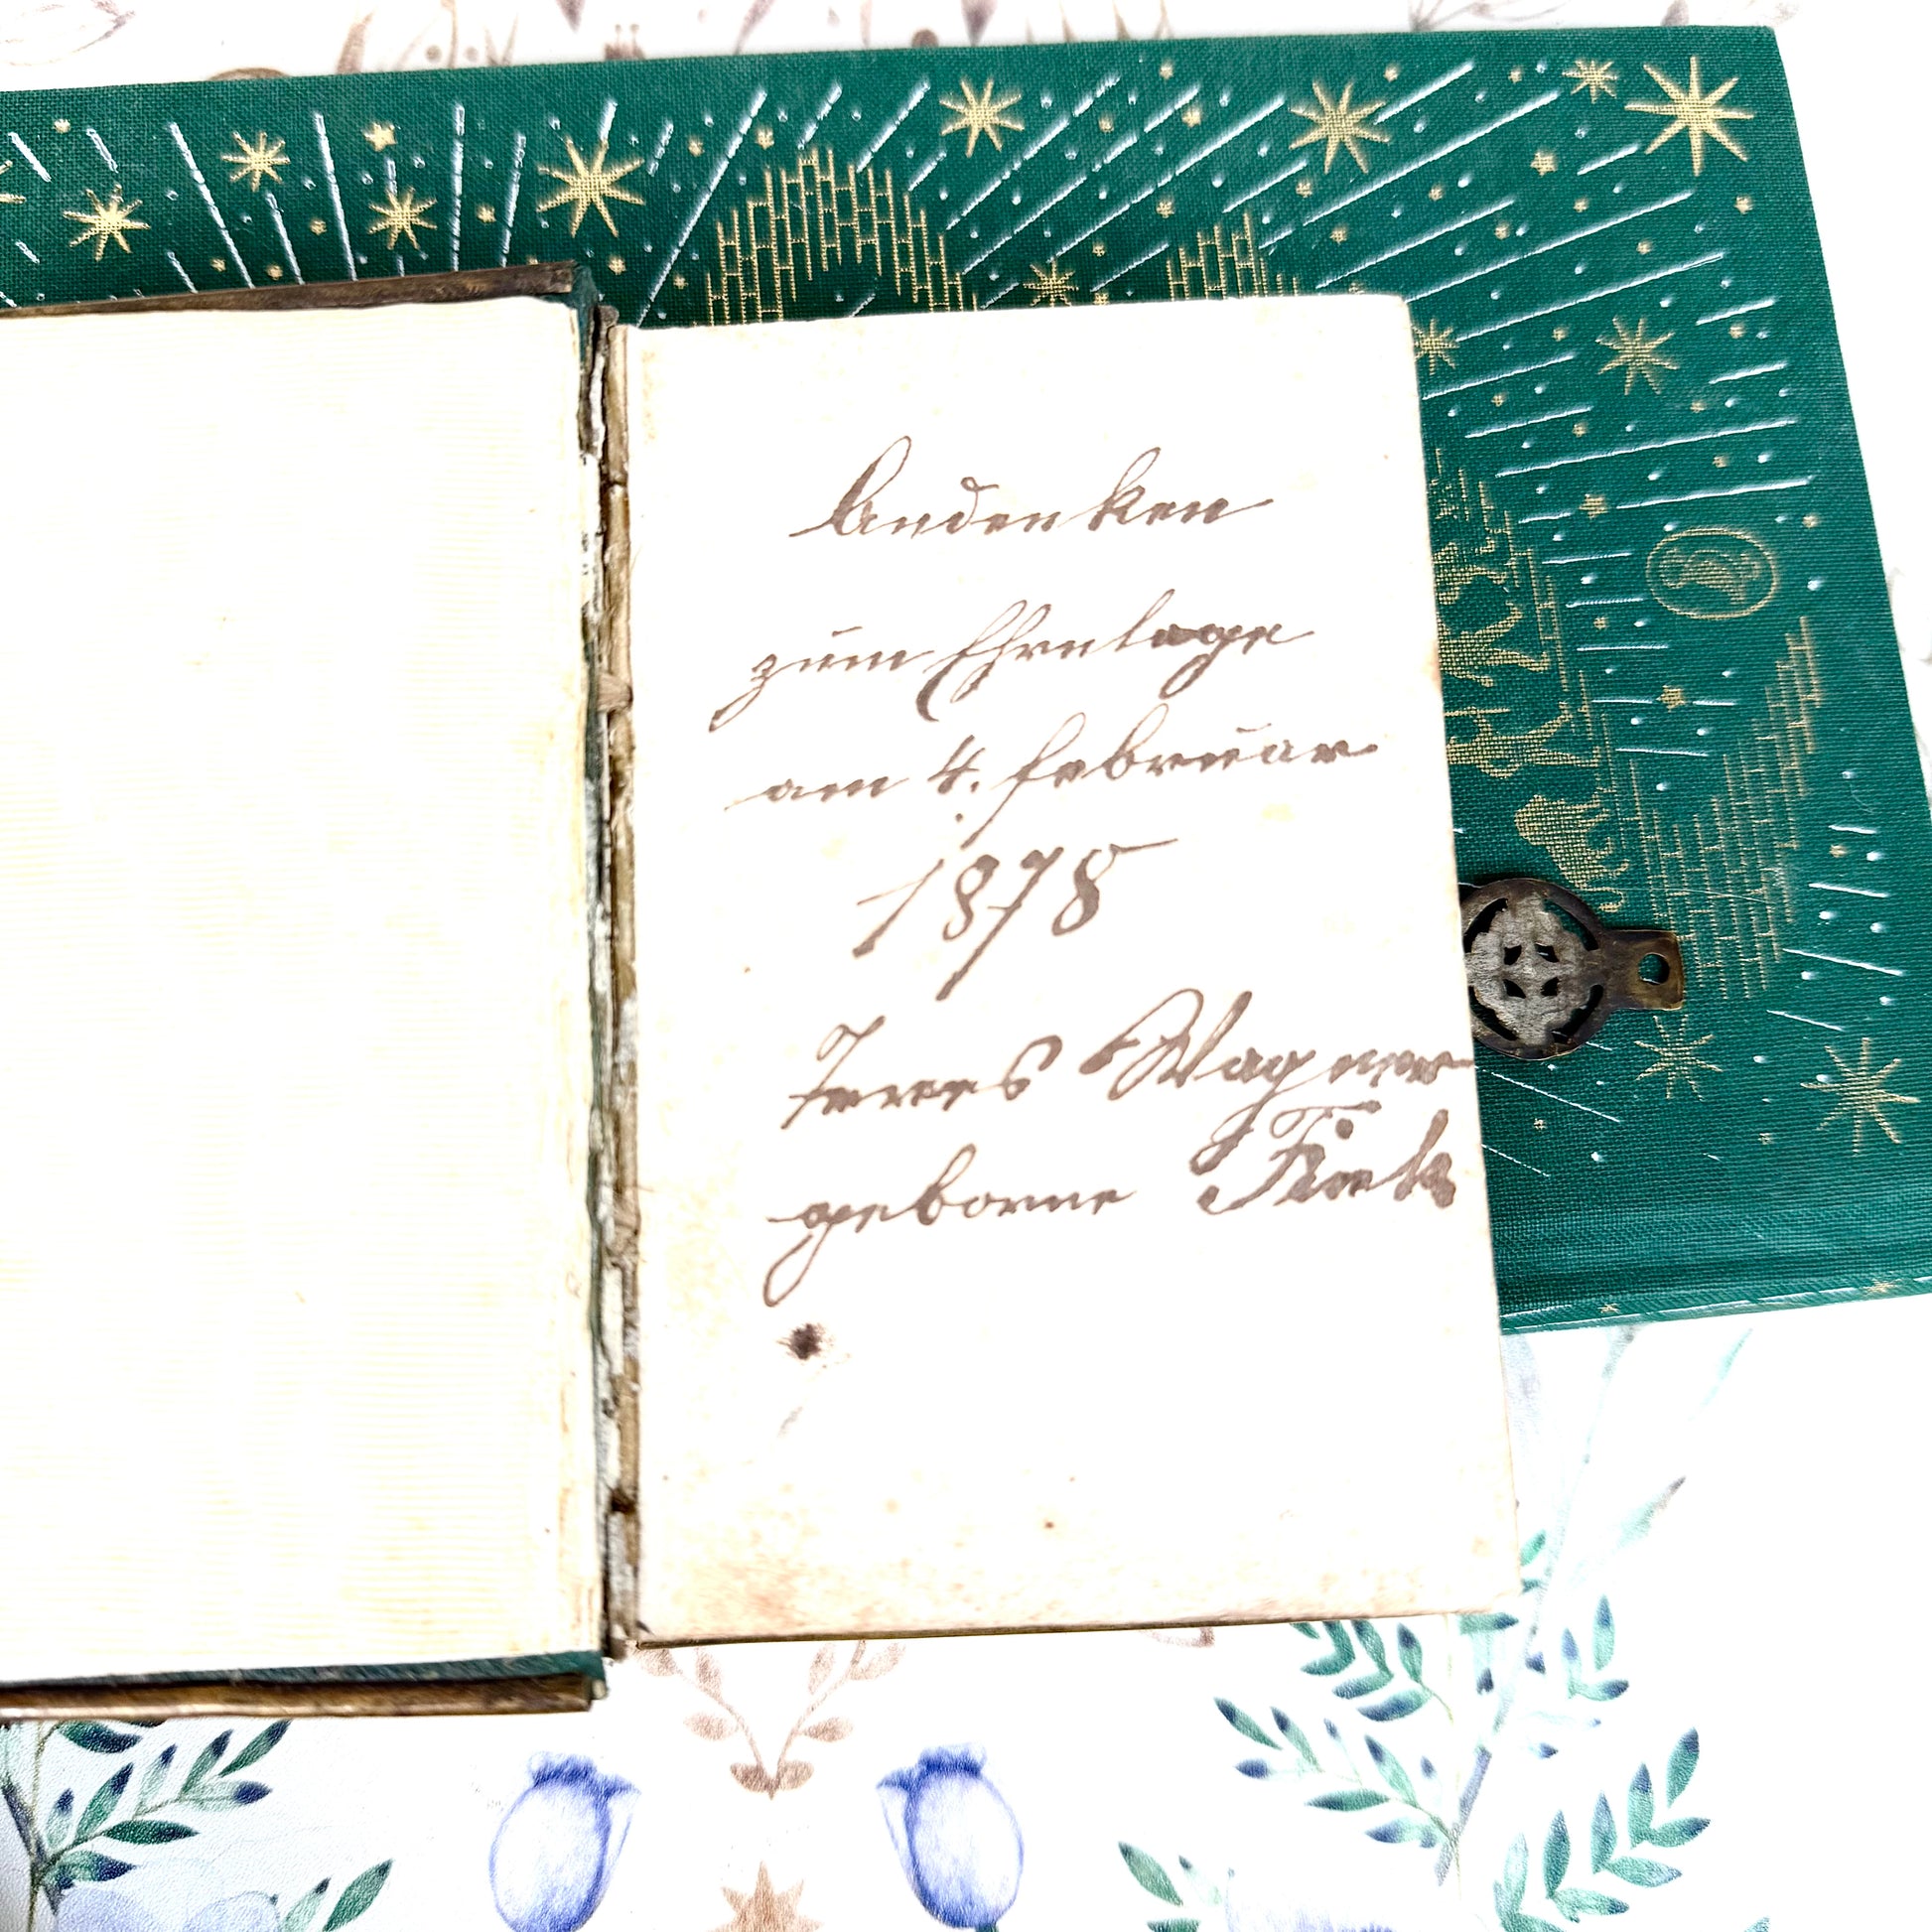 Andenken
zum Ehrentage
am 4. Februar
1878
Teres Wagner
geborne Fink